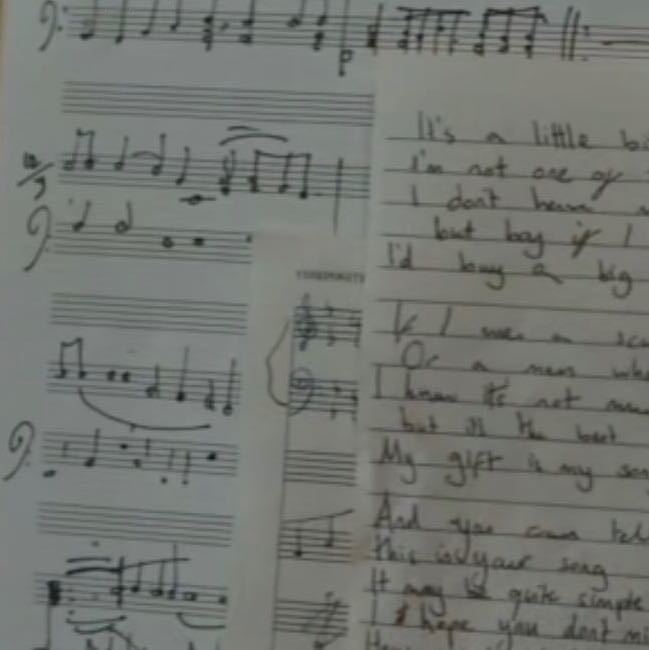 It's a little
I'm not one of
I don't have
but boy if I
I'd buy a big
If I was a
Or a man
I know it's not
but it's the best
My gift is my song
And you can
this is your song
It may be quite simple
I hope you don't